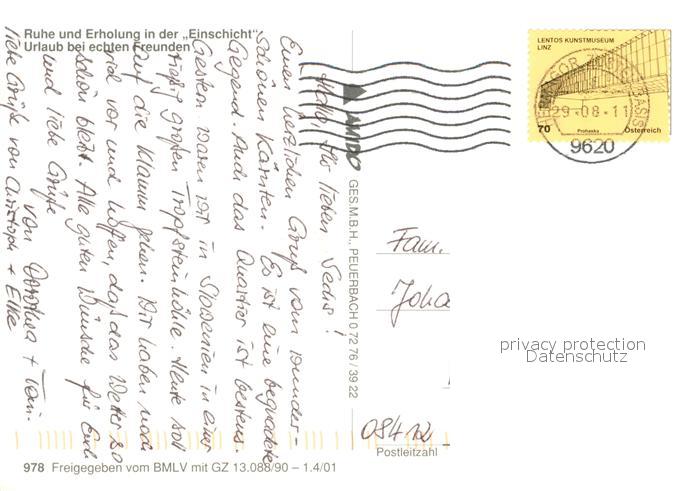 Ruhe und Erholung in der „Einschicht“
Urlaub bei echten Freunden
Hallo, Ihr lieben Sechs!
Einen herzlichen Gruß vom wunder-
schönen Kärnten. Es ist eine begnadete
Gegend. Und das Quartier ist bestens.
Gestern waren wir in Slowenien in einer
riesig großen Tropfsteinhöhle. Heute soll
auf die Klamm gehen. Wir haben noch
viel vor und hoffen, daß das Wetter so
schön bleibt. Alle guten Wünsche für Euch
und liebe Grüße
von Dorothea + Toni.
liebe Grüße von Christoph + Elke
AMDO
GES.M.B.H., PEUERBACH 0 72 76 / 39 22
LENTOS KUNSTMUSEUM
LINZ
29-08-11
70
Prohaska
Österreich
9620
Fam.
Joha
privacy protection
Datenschutz
08412
Postleitzahl
978 Freigegeben vom BMLV mit GZ 13.088/90 – 1.4/01